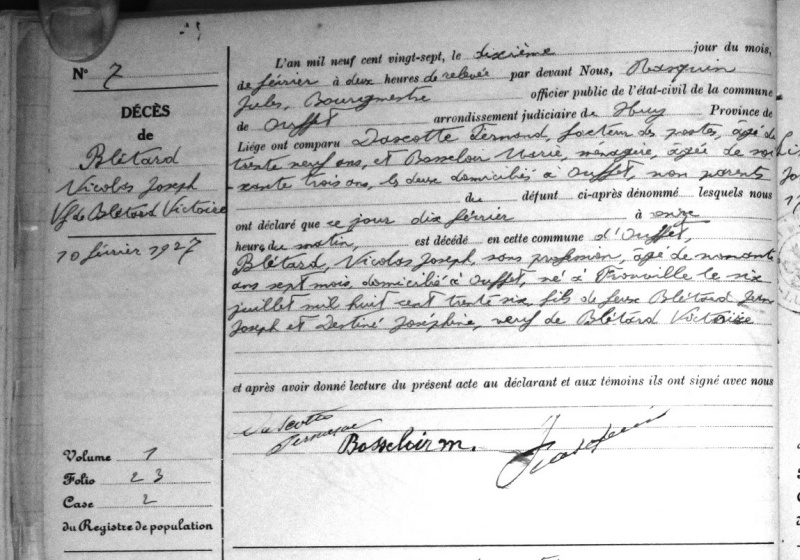 N° 7
DÉCÈS
de
Blétard
Nicolas Joseph
Vf de Blétard Victoire
10 février 1927
Volume 1
Folio 23
Case 2
du Registre de population
L'an mil neuf cent vingt-sept, le dixième jour du mois,
de février à deux heures de relevée par devant Nous,
Jules, Bourgmestre officier public de l'état-civil de la commune
de Ouffet arrondissement judiciaire de Huy Province de
Liége ont comparu Dascotte Fernand, facteur des postes, âgé de
trente neuf ans, et Marie, ménagère, âgée de soi
xante trois ans, les deux domiciliés à Ouffet, non parents
du défunt ci-après dénommé lesquels nous
ont déclaré que ce jour dix février à onze
heures du matin, est décédé en cette commune d'Ouffet,
Blétard, Nicolas Joseph, sans profession, âgé de nonante
ans sept mois, domicilié à Ouffet, né à le six
juillet mil huit cent trente six, fils de feux Blétard
Joseph et Destiné Joséphine, veuf de Blétard Victoire
et après avoir donné lecture du présent acte au déclarant et aux témoins ils ont signé avec nous